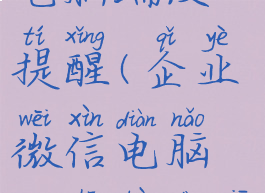 tí xǐng qǐ yè
提醒(企业
wēi xìn diàn nǎo
微信电脑